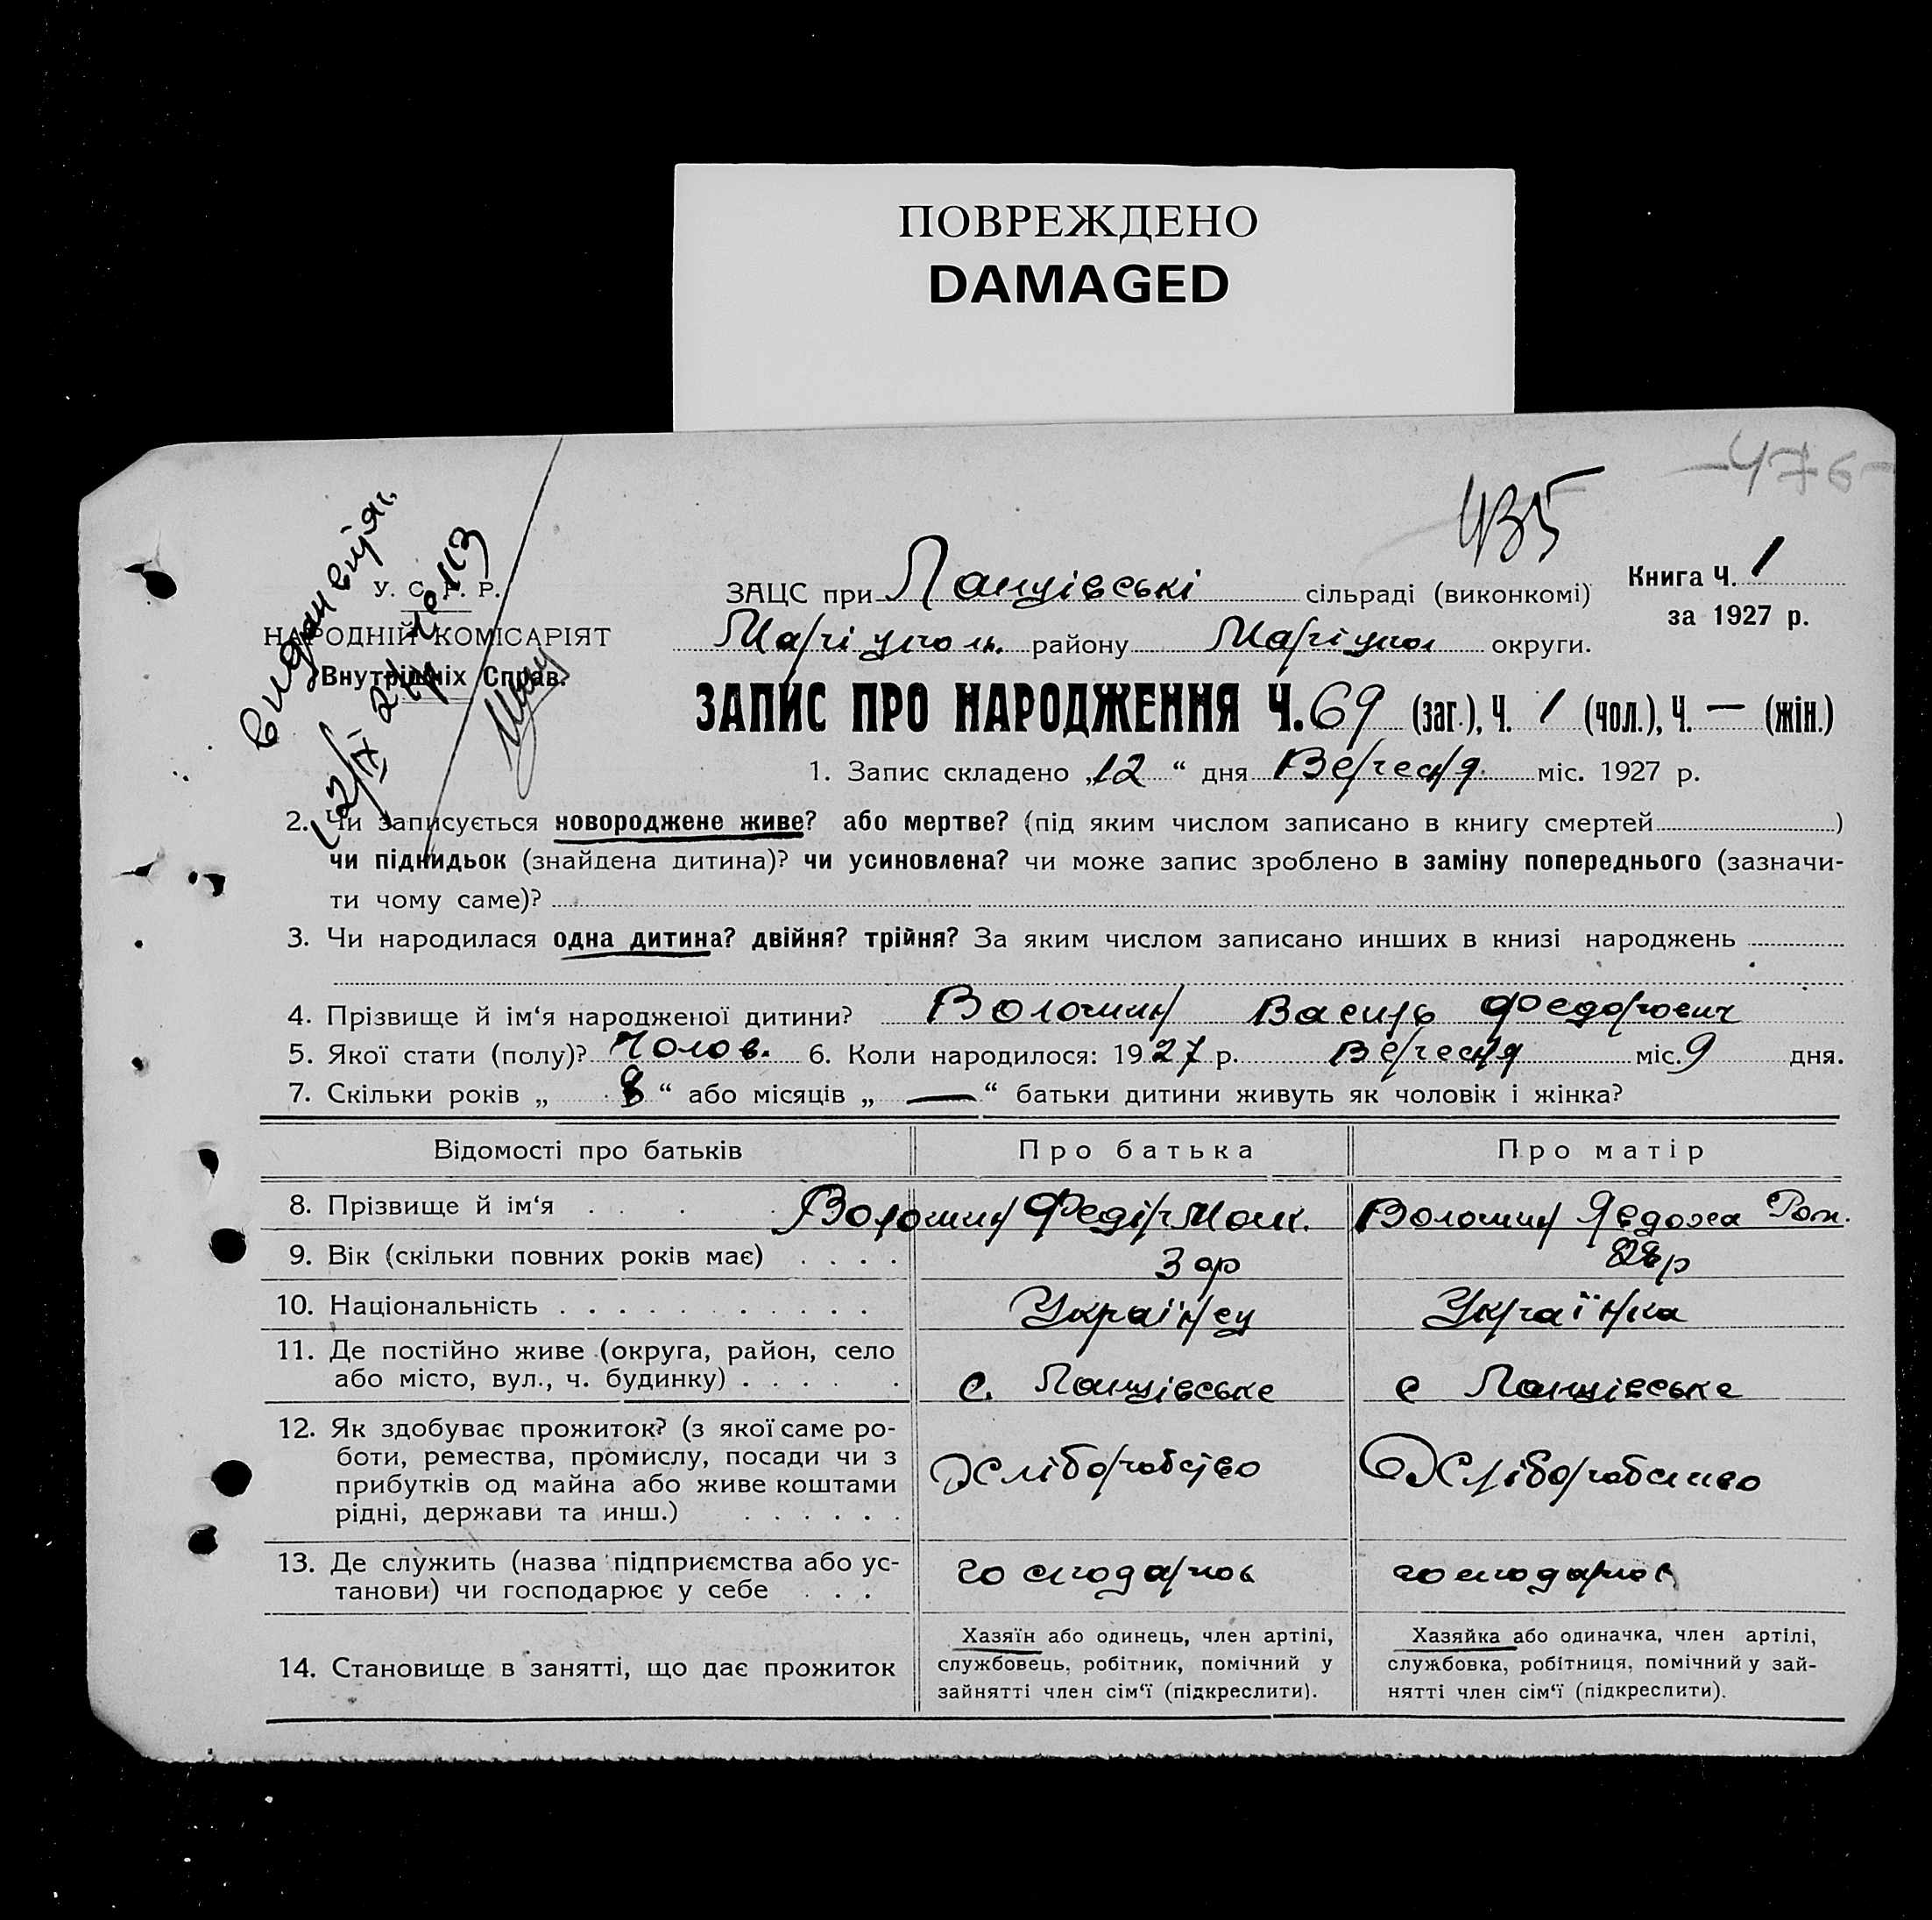 ПОВРЕЖДЕНО
DAMAGED
-476-
435
Видан витяг.
12/IX 27 р. № 113
У. С. Р. Р.
НАРОДНІЙ КОМІСАРІЯТ
Внутрішніх Справ.
ЗАЦС при Ланцівські сільраді (виконкомі)
Книга Ч. 1
за 1927 р.
Маріуполь. району Маріупол округи.
ЗАПИС ПРО НАРОДЖЕННЯ Ч. 69 (заг.), Ч. 1 (чол.), Ч. — (жін.)
1. Запис складено „12" дня Вересня міс. 1927 р.
2. Чи записується новороджене живе? або мертве? (під яким числом записано в книгу смертей)
чи підкидьок (знайдена дитина)? чи усиновлена? чи може запис зроблено в заміну попереднього (зазначи-
ти чому саме)?
3. Чи народилася одна дитина? двійня? трійня? За яким числом записано инших в книзі народжень
4. Прізвище й ім‘я народженої дитини? Волошин Василь Федорович
5. Якої стати (полу)? Чолов. 6. Коли народилося: 1927 р. Вересня міс. 9 дня.
7. Скільки років „ 8 “ або місяців „ — “ батьки дитини живуть як чоловік і жінка?
Відомості про батьків Про батька Про матір
8. Прізвище й ім‘я Волошин Федір Волошин Явдоха Ром.
9. Вік (скільки повних років має) 30р 28р
10. Національність Українец Українка
11. Де постійно живе (округа, район, село
або місто, вул., ч. будинку) с. Ланцівське с Ланцівське
12. Як здобуває прожиток? (з якої саме ро-
боти, ремества, промислу, посади чи з
прибутків од майна або живе коштами
рідні, держави та инш.)
Хліборобство Хліборобство
13. Де служить (назва підприємства або ус-
танови) чи господарює у себе
14. Становище в занятті, що дає прожиток
Хазяїн або одинець, член артілі,
службовець, робітник, помічний у
зайнятті член сім‘ї (підкреслити).
Хазяйка або одиначка, член артілі,
службовка, робітниця, помічний у зай-
нятті член сім‘ї (підкреслити).